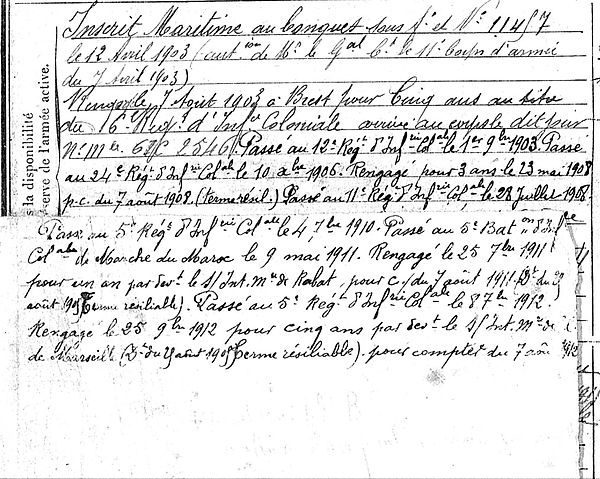 s la disponibilité
serve de l'armée active.
Inscrit Maritime au Conquet sous f° et N° 11457
le 12 Avril 1903 (aut^on de M^r le G^al C^t le 11^e Corps d'armée
du 7 Avril 1903)
Rengagé le 7 Août 1903 à Brest pour Cinq ans au titre
du 6^e Rég^t d'Inf^ie Coloniale arrivé au corps le dit jour
N° m^le 2546. Passé au 12^e Rég^t d'Inf^rie Col^ale le 1^er 9^bre 1903. Passé
au 24^e Rég^t d'Inf^rie Col^ale le 10 x^bre 1906. Rengagé pour 3 ans le 23 mai 1908
p.c. du 7 août 1908. (terme résil.) Passé au 11^e Rég^t d'Inf^rie Col^ale le 28 Juillet 1908.
Passé au 5^e Rég^t d'Inf^rie Col^ale le 4 7^bre 1910. Passé au 5^e Bat^on d'Inf^rie
Col^ale de Marche du Maroc le 9 mai 1911. Rengagé le 25 7^bre 1911
pour un an par dev^t le S/Int. M^re de Rabat, pour c. du 7 août 1911 (D^t du
août 190 Terme résiliable). Passé au 5^e Rég^t d'Inf^rie Col^ale le 8 7^bre 1912.
Rengagé le 25 9^bre 1912 pour cinq ans par dev^t le S/Int. M^re de
de Marseille (D^t du août 190 Terme résiliable). pour compter du 7 août 1912